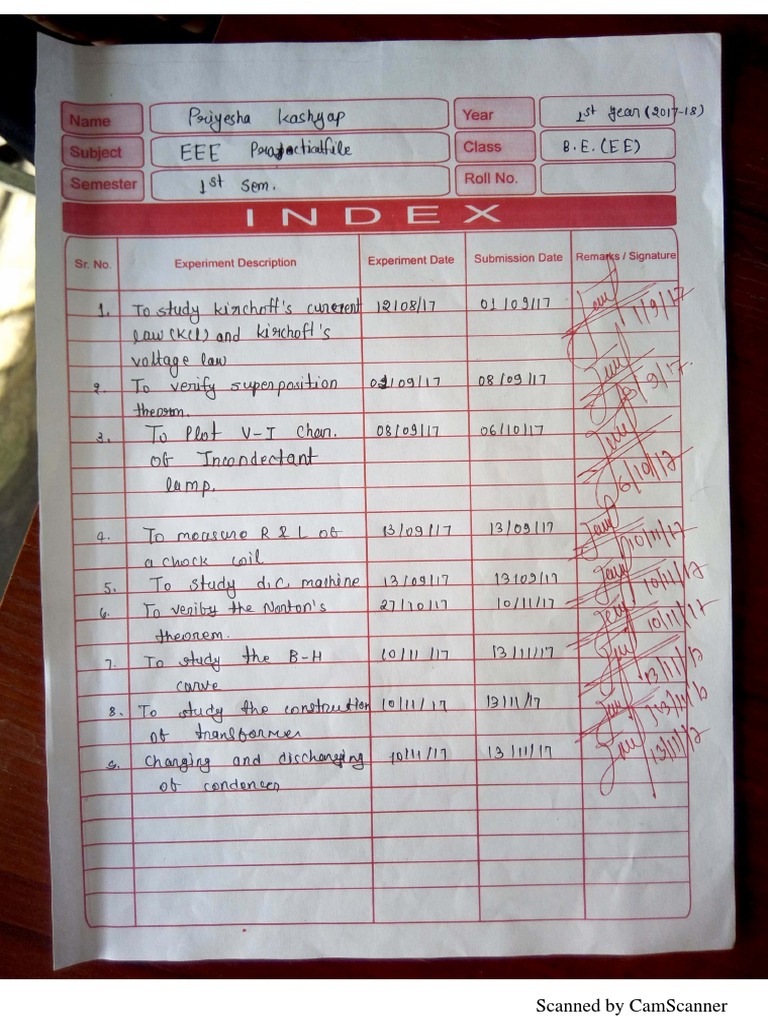 Name Priyesha Kashyap Year 1st year (2017-18)
Subject EEE Practicalfile Class B.E. (EE)
Semester 1st Sem. Roll No.
INDEX
Sr. No. Experiment Description Experiment Date Submission Date Remarks / Signature
1. To study kirchoff's current 12/08/17 01/09/17
law(KCl) and kirchoff's 1/9/17
voltage law
2. To verify superposition 01/09/17 08/09/17 8/9/17
theorem.
3. To Plot V-I Char. 08/09/17 06/10/17
of Incondectant 6/10/17
lamp.
4. To measure R & L of 13/09/17 13/09/17 10/11/17
a chock coil
5. To study d.c. machine 13/09/17 13/09/17 10/11/17
6. To verify the Norton's 27/10/17 10/11/17 10/11/17
theorem.
7. To study the B-H 10/11/17 13/11/17 13/11/17
carve
8. To study the construction 10/11/17 13/11/17 13/11/17
of transformer
9. Charging and discharging 10/11/17 13/11/17 13/11/17
of condencer
Scanned by CamScanner